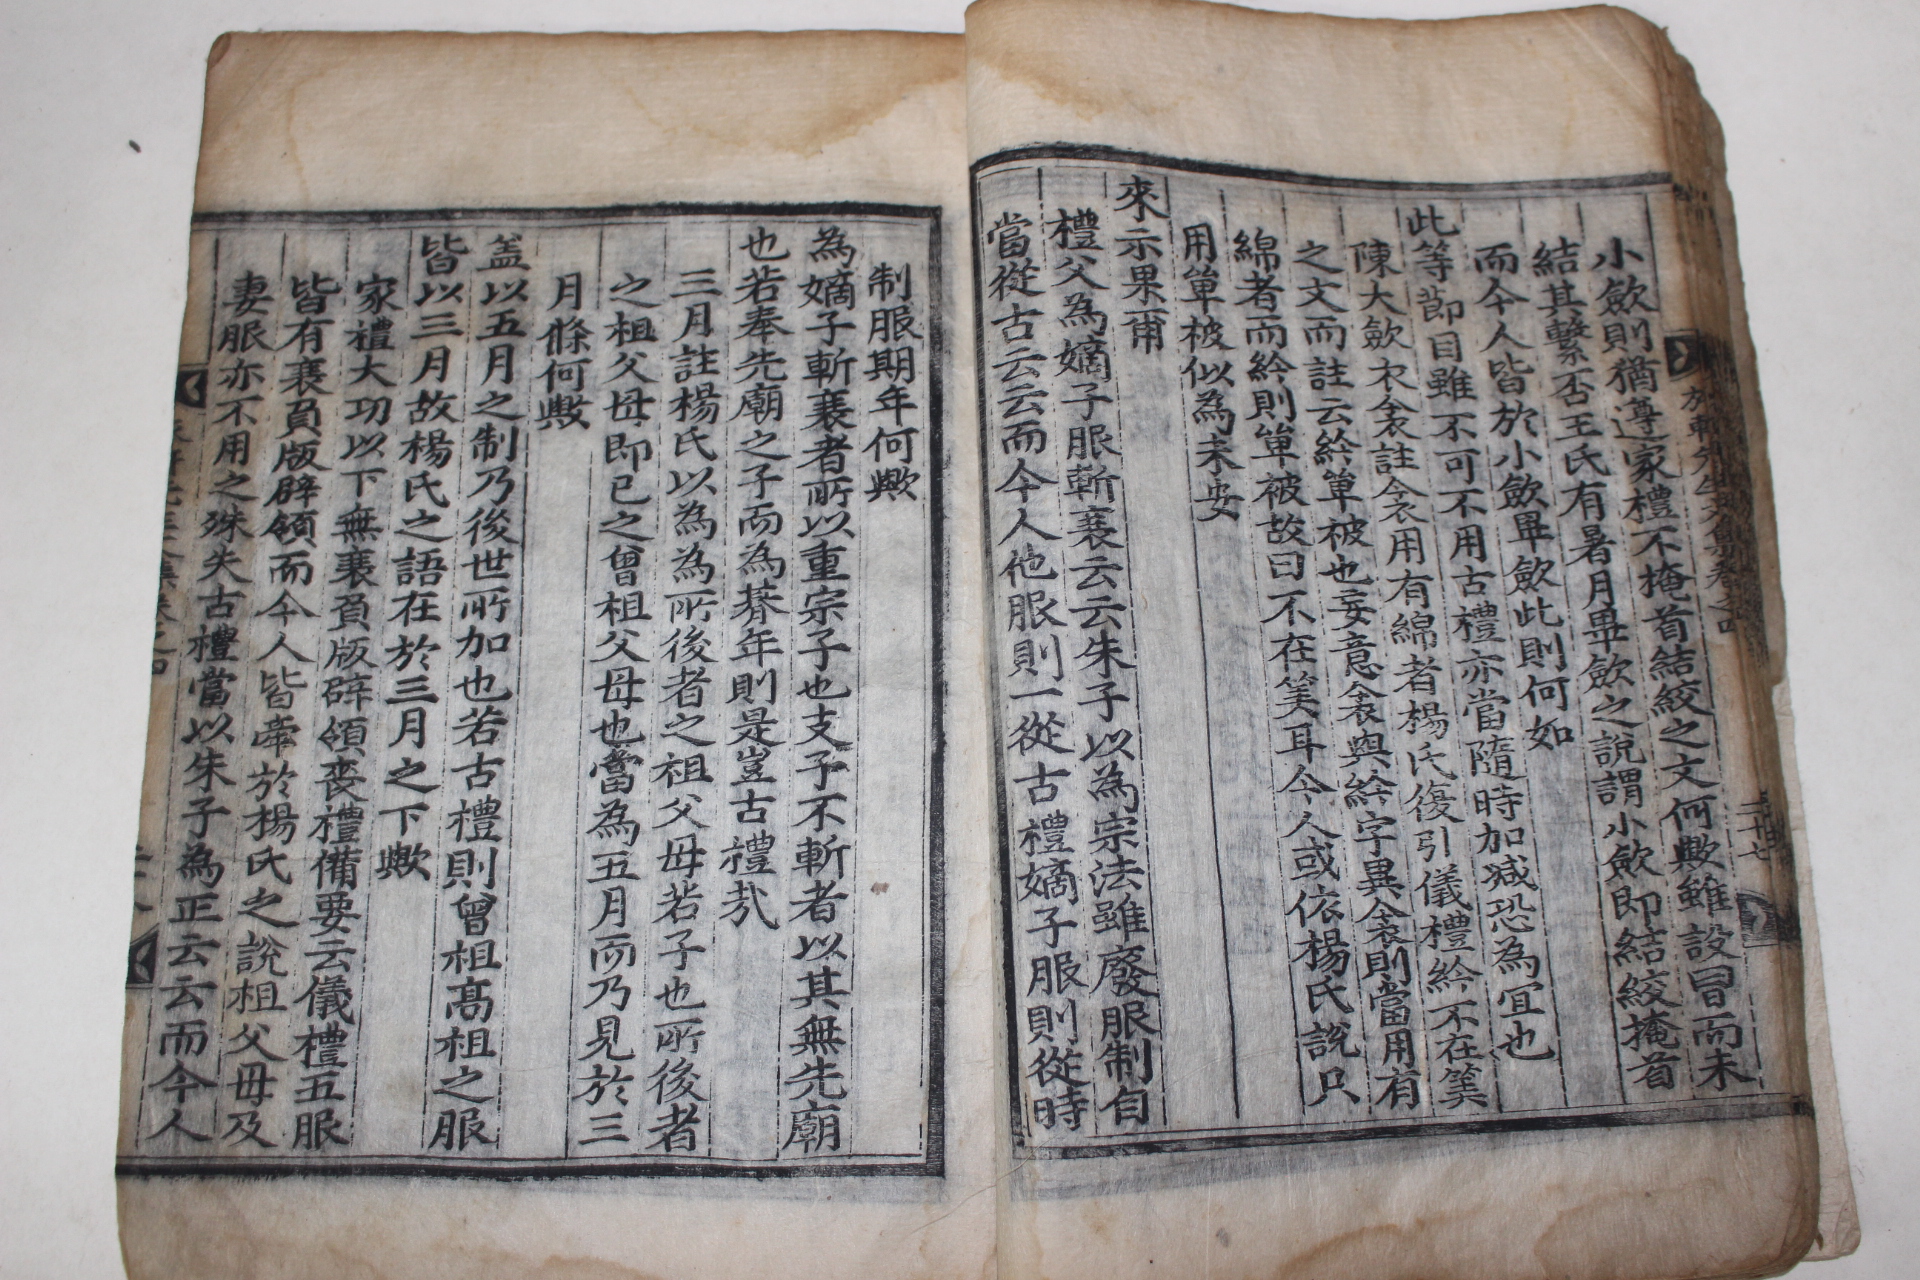 小斂則猶遵家禮不掩首結絞之文何歟雖設冒而未
結其繫否王氏有暑月畢斂之說謂小斂即結絞掩首
而今人皆於小斂畢斂此則何如
此等節目雖不可不用古禮亦當隨時加减恐為宜也
陳大斂衣衾註衾用有綿者楊氏復引儀禮紟不在筭
之文而註云紟單被也妄意衾與紟字異衾則當用有
綿者而紟則單被故曰不在筭耳今人或依楊氏說只
用單被似為未安
來示果甭
禮父為嫡子服斬衰云云朱子以為宗法雖廢服制自
當從古云云而今人他服則一從古禮嫡子服則從時
制服期年何歟
為嫡子斬衰者所以重宗子也支子不斬者以其無先廟
也若奉先廟之子而為朞年則是豈古禮㢤
三月註楊氏以為為所後者之祖父母若子也所後者
之祖父母即已之曾祖父母也當為五月而乃見於三
月條何歟
盖以五月之制乃後世所加也若古禮則曾祖高祖之服
皆以三月故楊氏之語在於三月之下歟
家禮大功以下無衰負版辟領喪禮備要云儀禮五服
皆有衰負版辟領而今人皆牽於楊氏之說祖父母及
妻服亦不用之殊失古禮當以朱子為正云云而今人